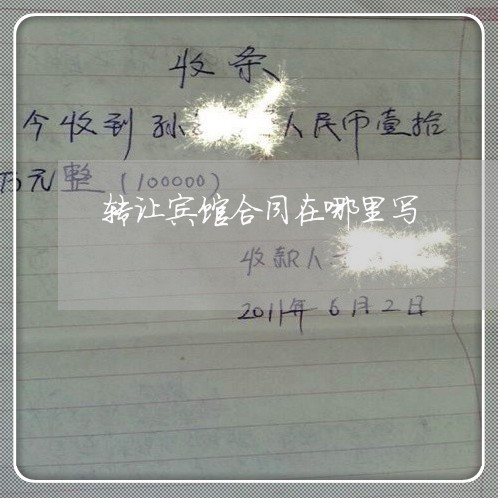 收条
今收到孙人民币壹拾
万元整（100000）
转让宾馆合同在哪里写
收款人
2011年6月2日